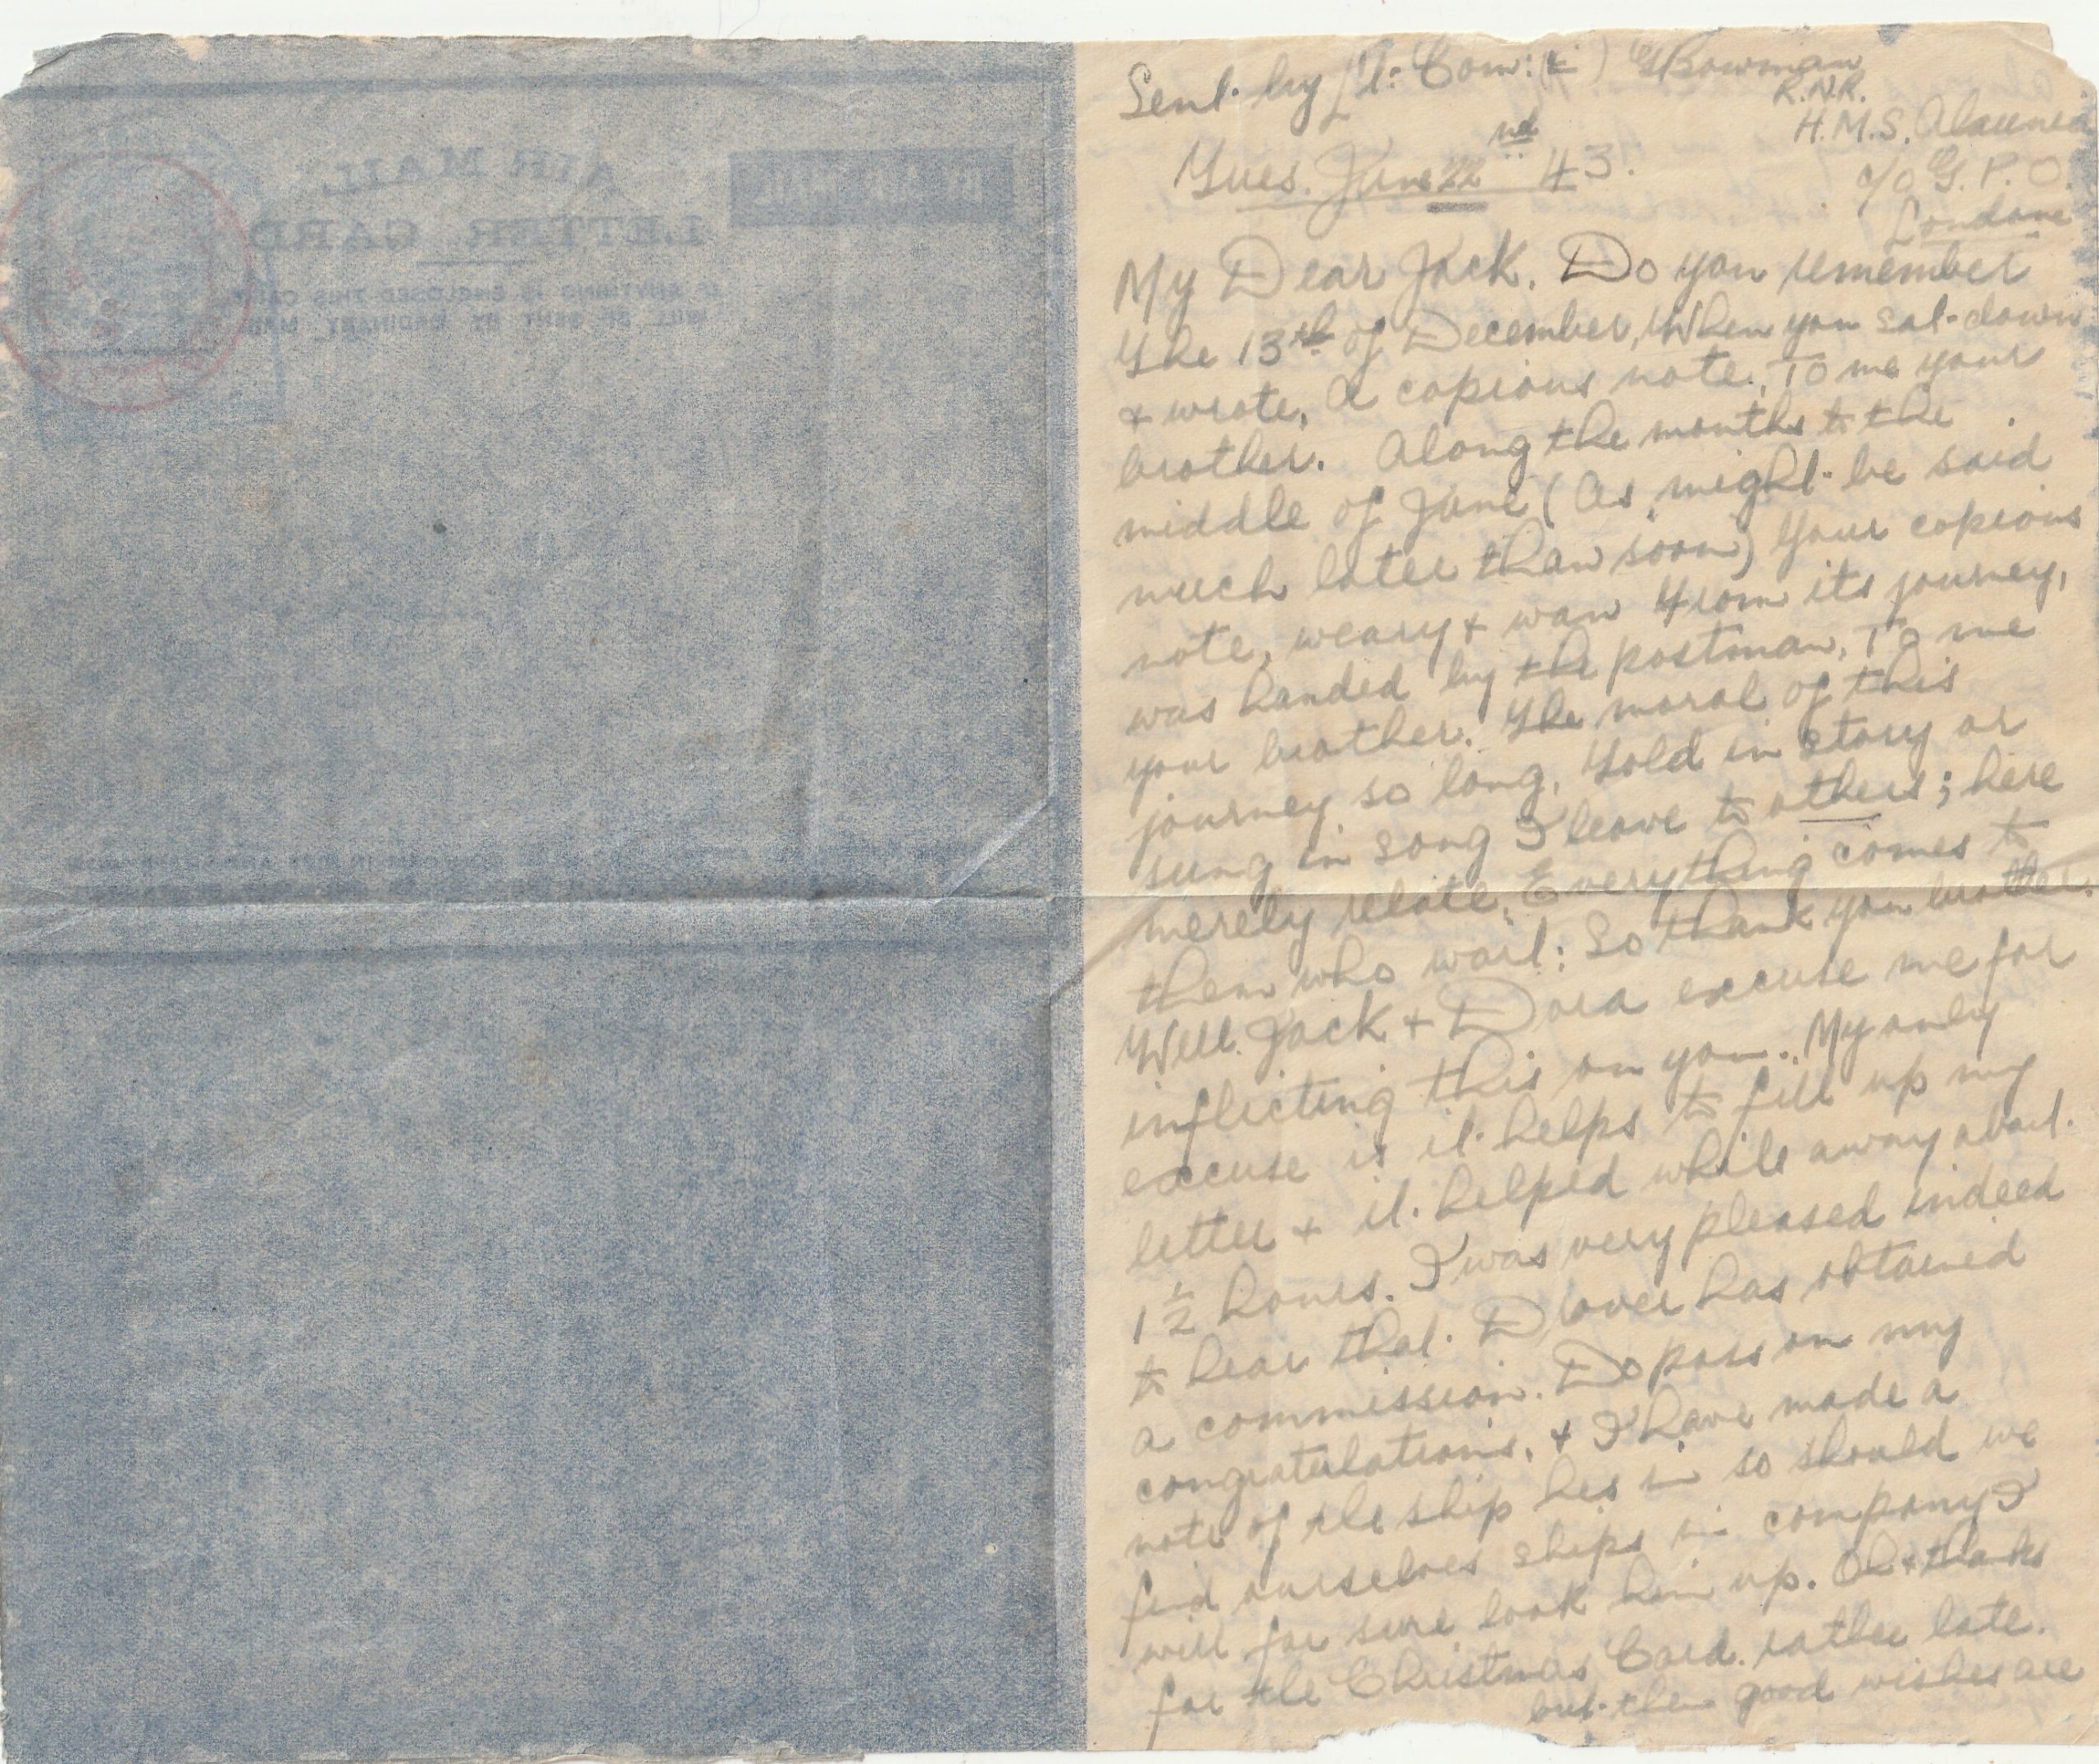 AIR MAIL
LETTER CARD
IF ANYTHING IS ENCLOSED THIS CARD
WILL BE SENT BY ORDINARY MAIL
BY AIR MAIL
Sent by Lt: Com: (E) Bowman
R.N.R.
H.M.S. Alaunia
c/o G.P.O.
London
Tues. June 22nd 43.
My Dear Jack. Do you remember
the 13th of December, When you sat down
& wrote, a copious note. To me your
brother. Along the months to the
middle of June (As might be said
much later than soon) Your copious
note, weary & wan from its journey,
was handed by the postman, To me
your brother. The moral of this
journey so long, told in story or
sung in song I leave to others; here
merely relate, Everything comes to
them who wait: So thank you brother.
Well Jack & Dora excuse me for
inflicting this on you.. My only
excuse is it helps to fill up my
letter & it helped while away about
1 1/2 hours. I was very pleased indeed
to hear that Drover has obtained
a commission. Do pass on my
congratulations, & I have made a
note of the ship hes in so should we
find ourselves ships in company I
will for sure look him up. Oh & thanks
for the Christmas Card. rather late.
but then good wishes are